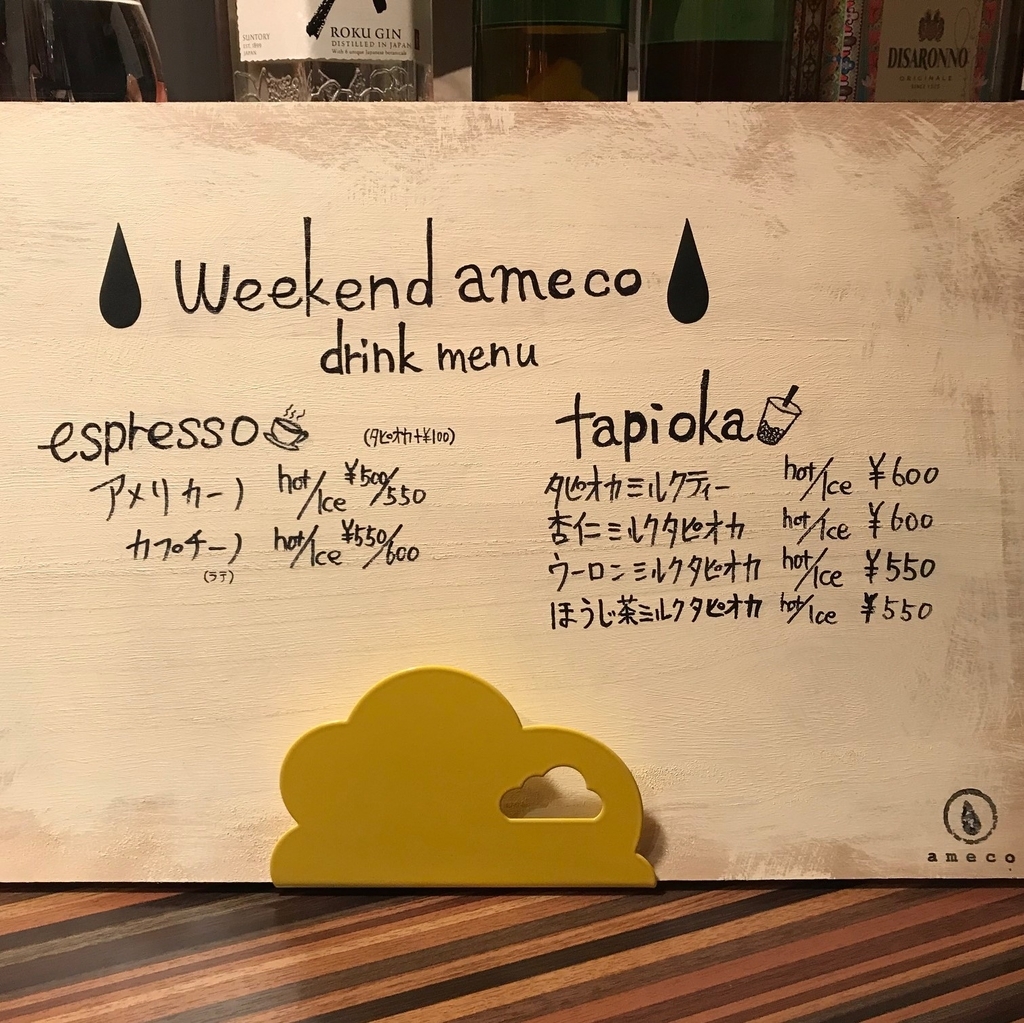 SUNTORY
ROKU GIN
DISTILLED IN JAPAN
DISARONNO
ORIGINALE
Weekend ameco
drink menu
espresso (タピオカ+¥100)
アメリカーノ hot/Ice ¥500/550
カプチーノ hot/Ice ¥550/600
(ラテ)
tapioka
タピオカミルクティー hot/Ice ¥600
杏仁ミルクタピオカ hot/Ice ¥600
ウーロンミルクタピオカ hot/Ice ¥550
ほうじ茶ミルクタピオカ hot/Ice ¥550
ameco